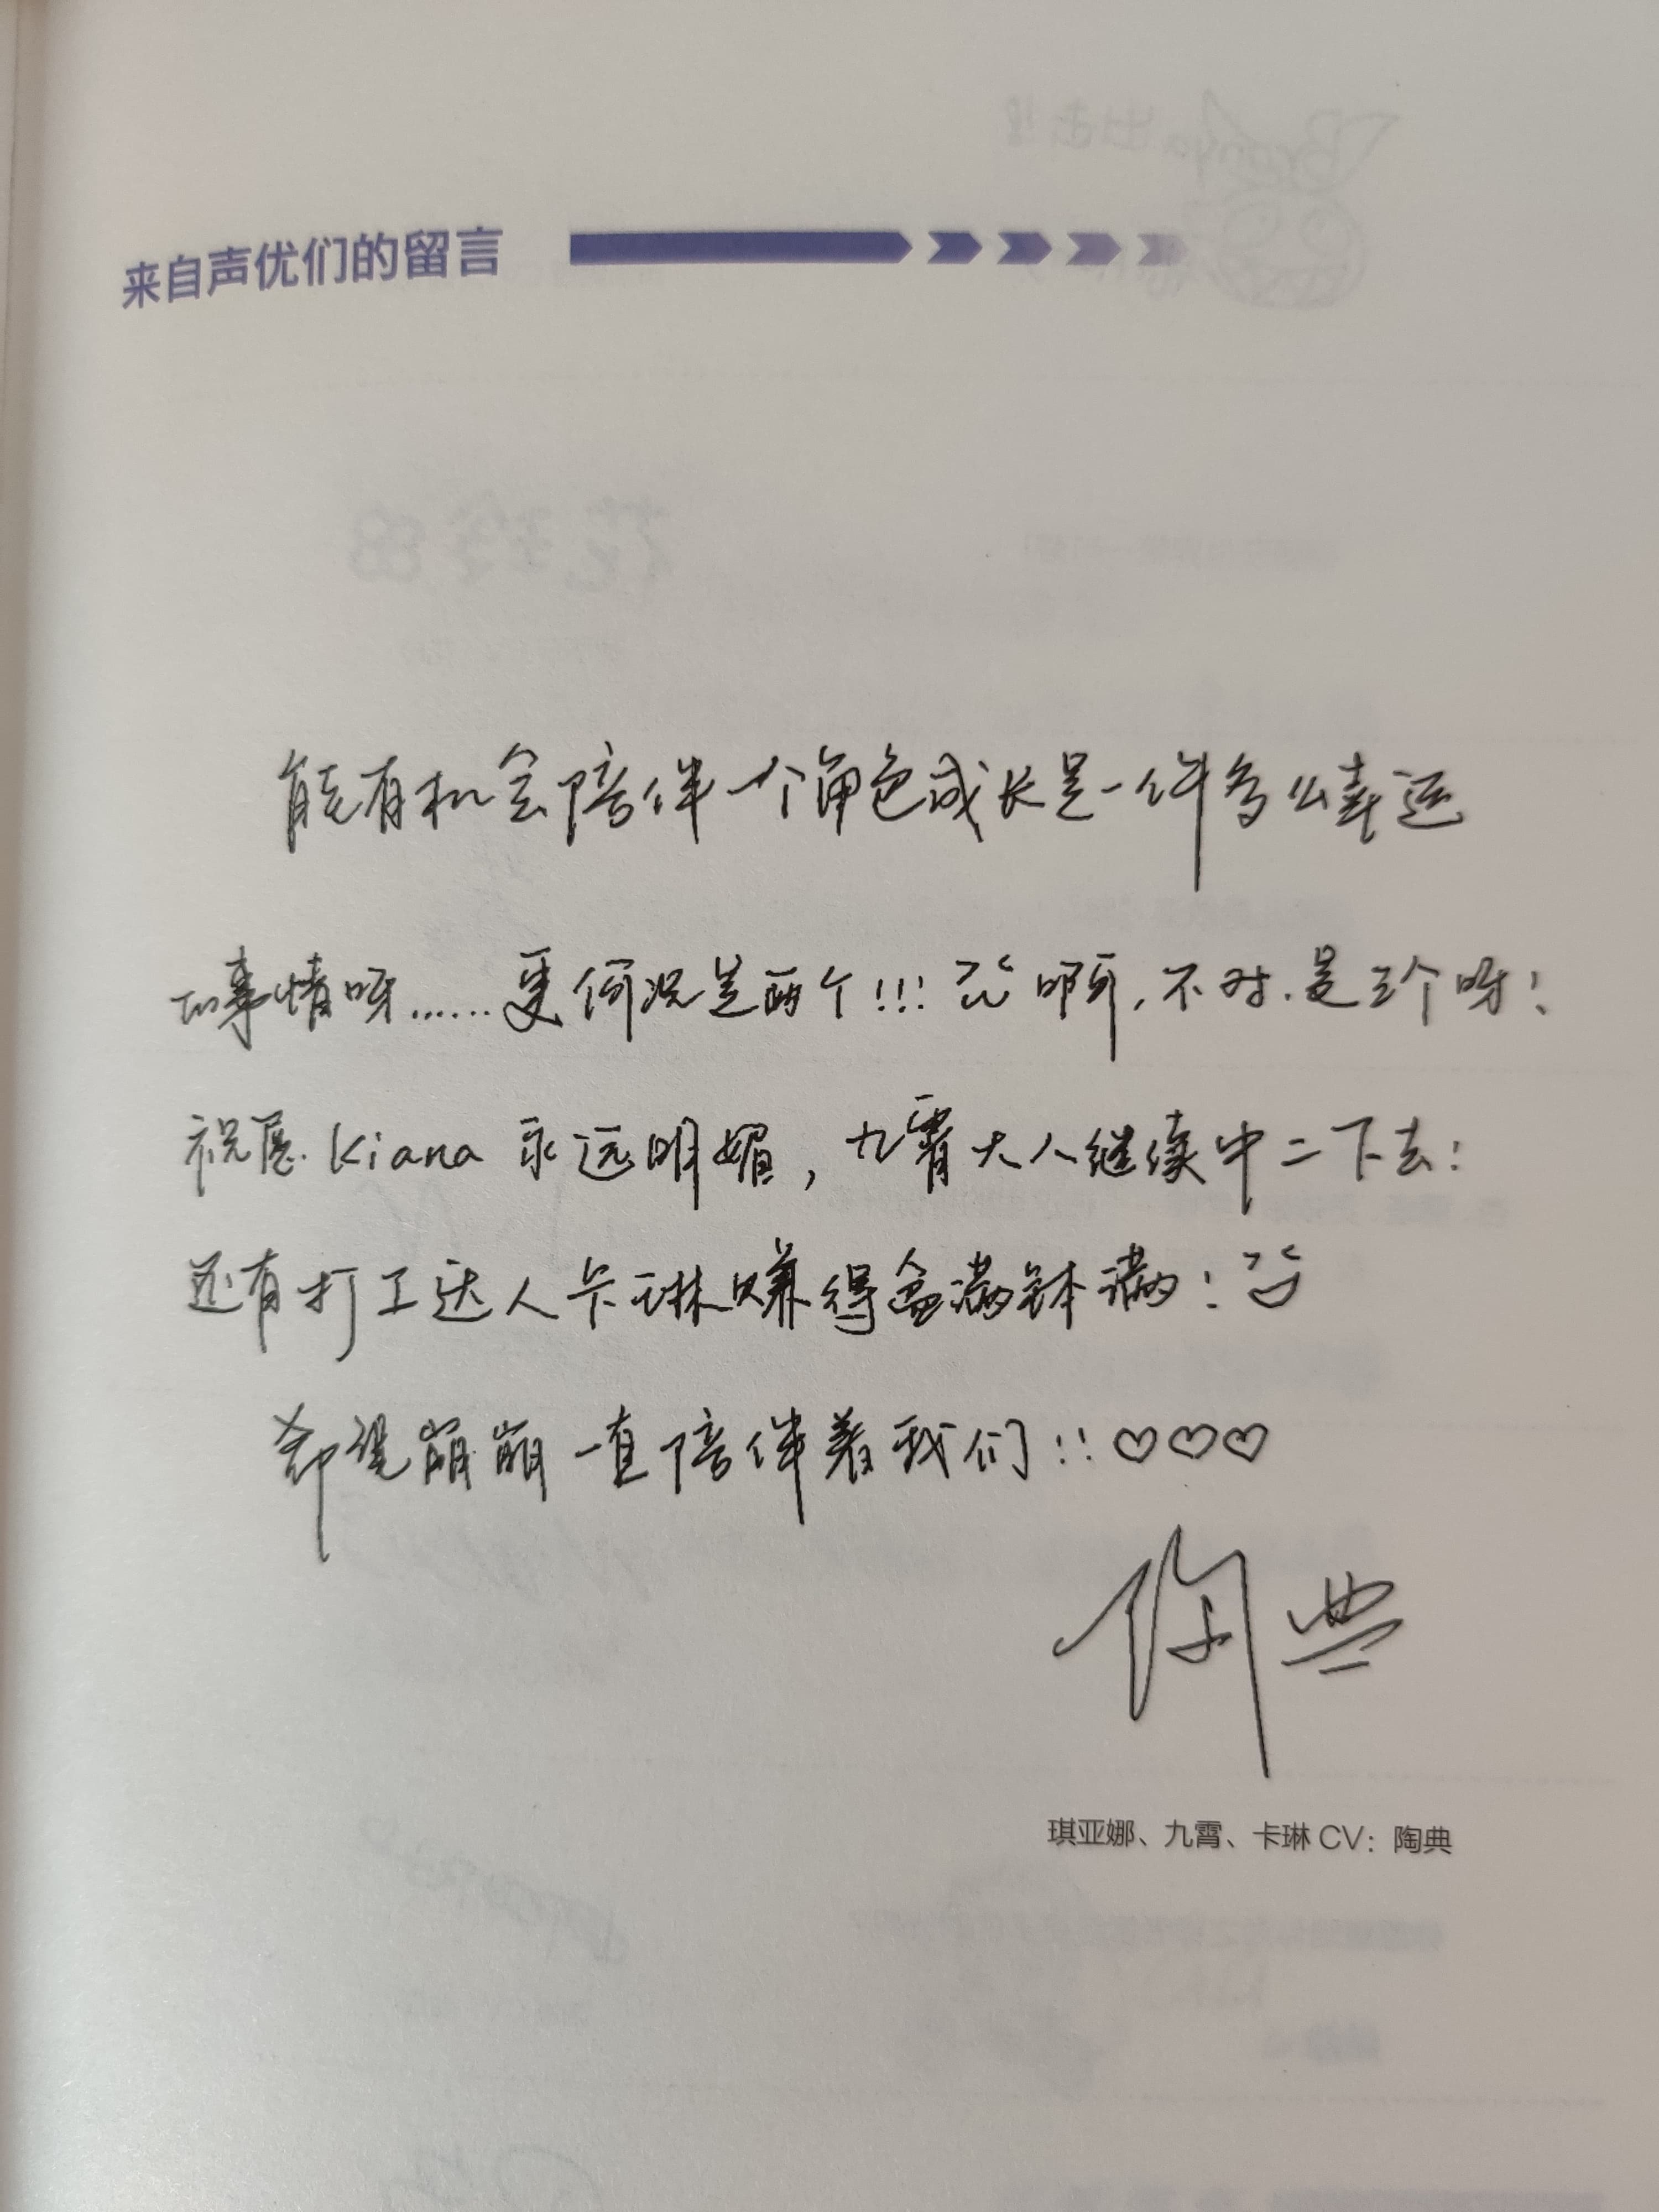 来自声优们的留言
能有机会陪伴一个角色成长是一件多么幸运
的事情呀……更何况是两个!!! 啊,不对.是三个呀!
祝愿.Kiana 永远明媚,九霄大人继续中二下去!
还有打工达人卡琳赚得盆满钵满!
希望崩崩一直陪伴着我们!!♡♡♡
陶典
琪亚娜、九霄、卡琳 CV：陶典